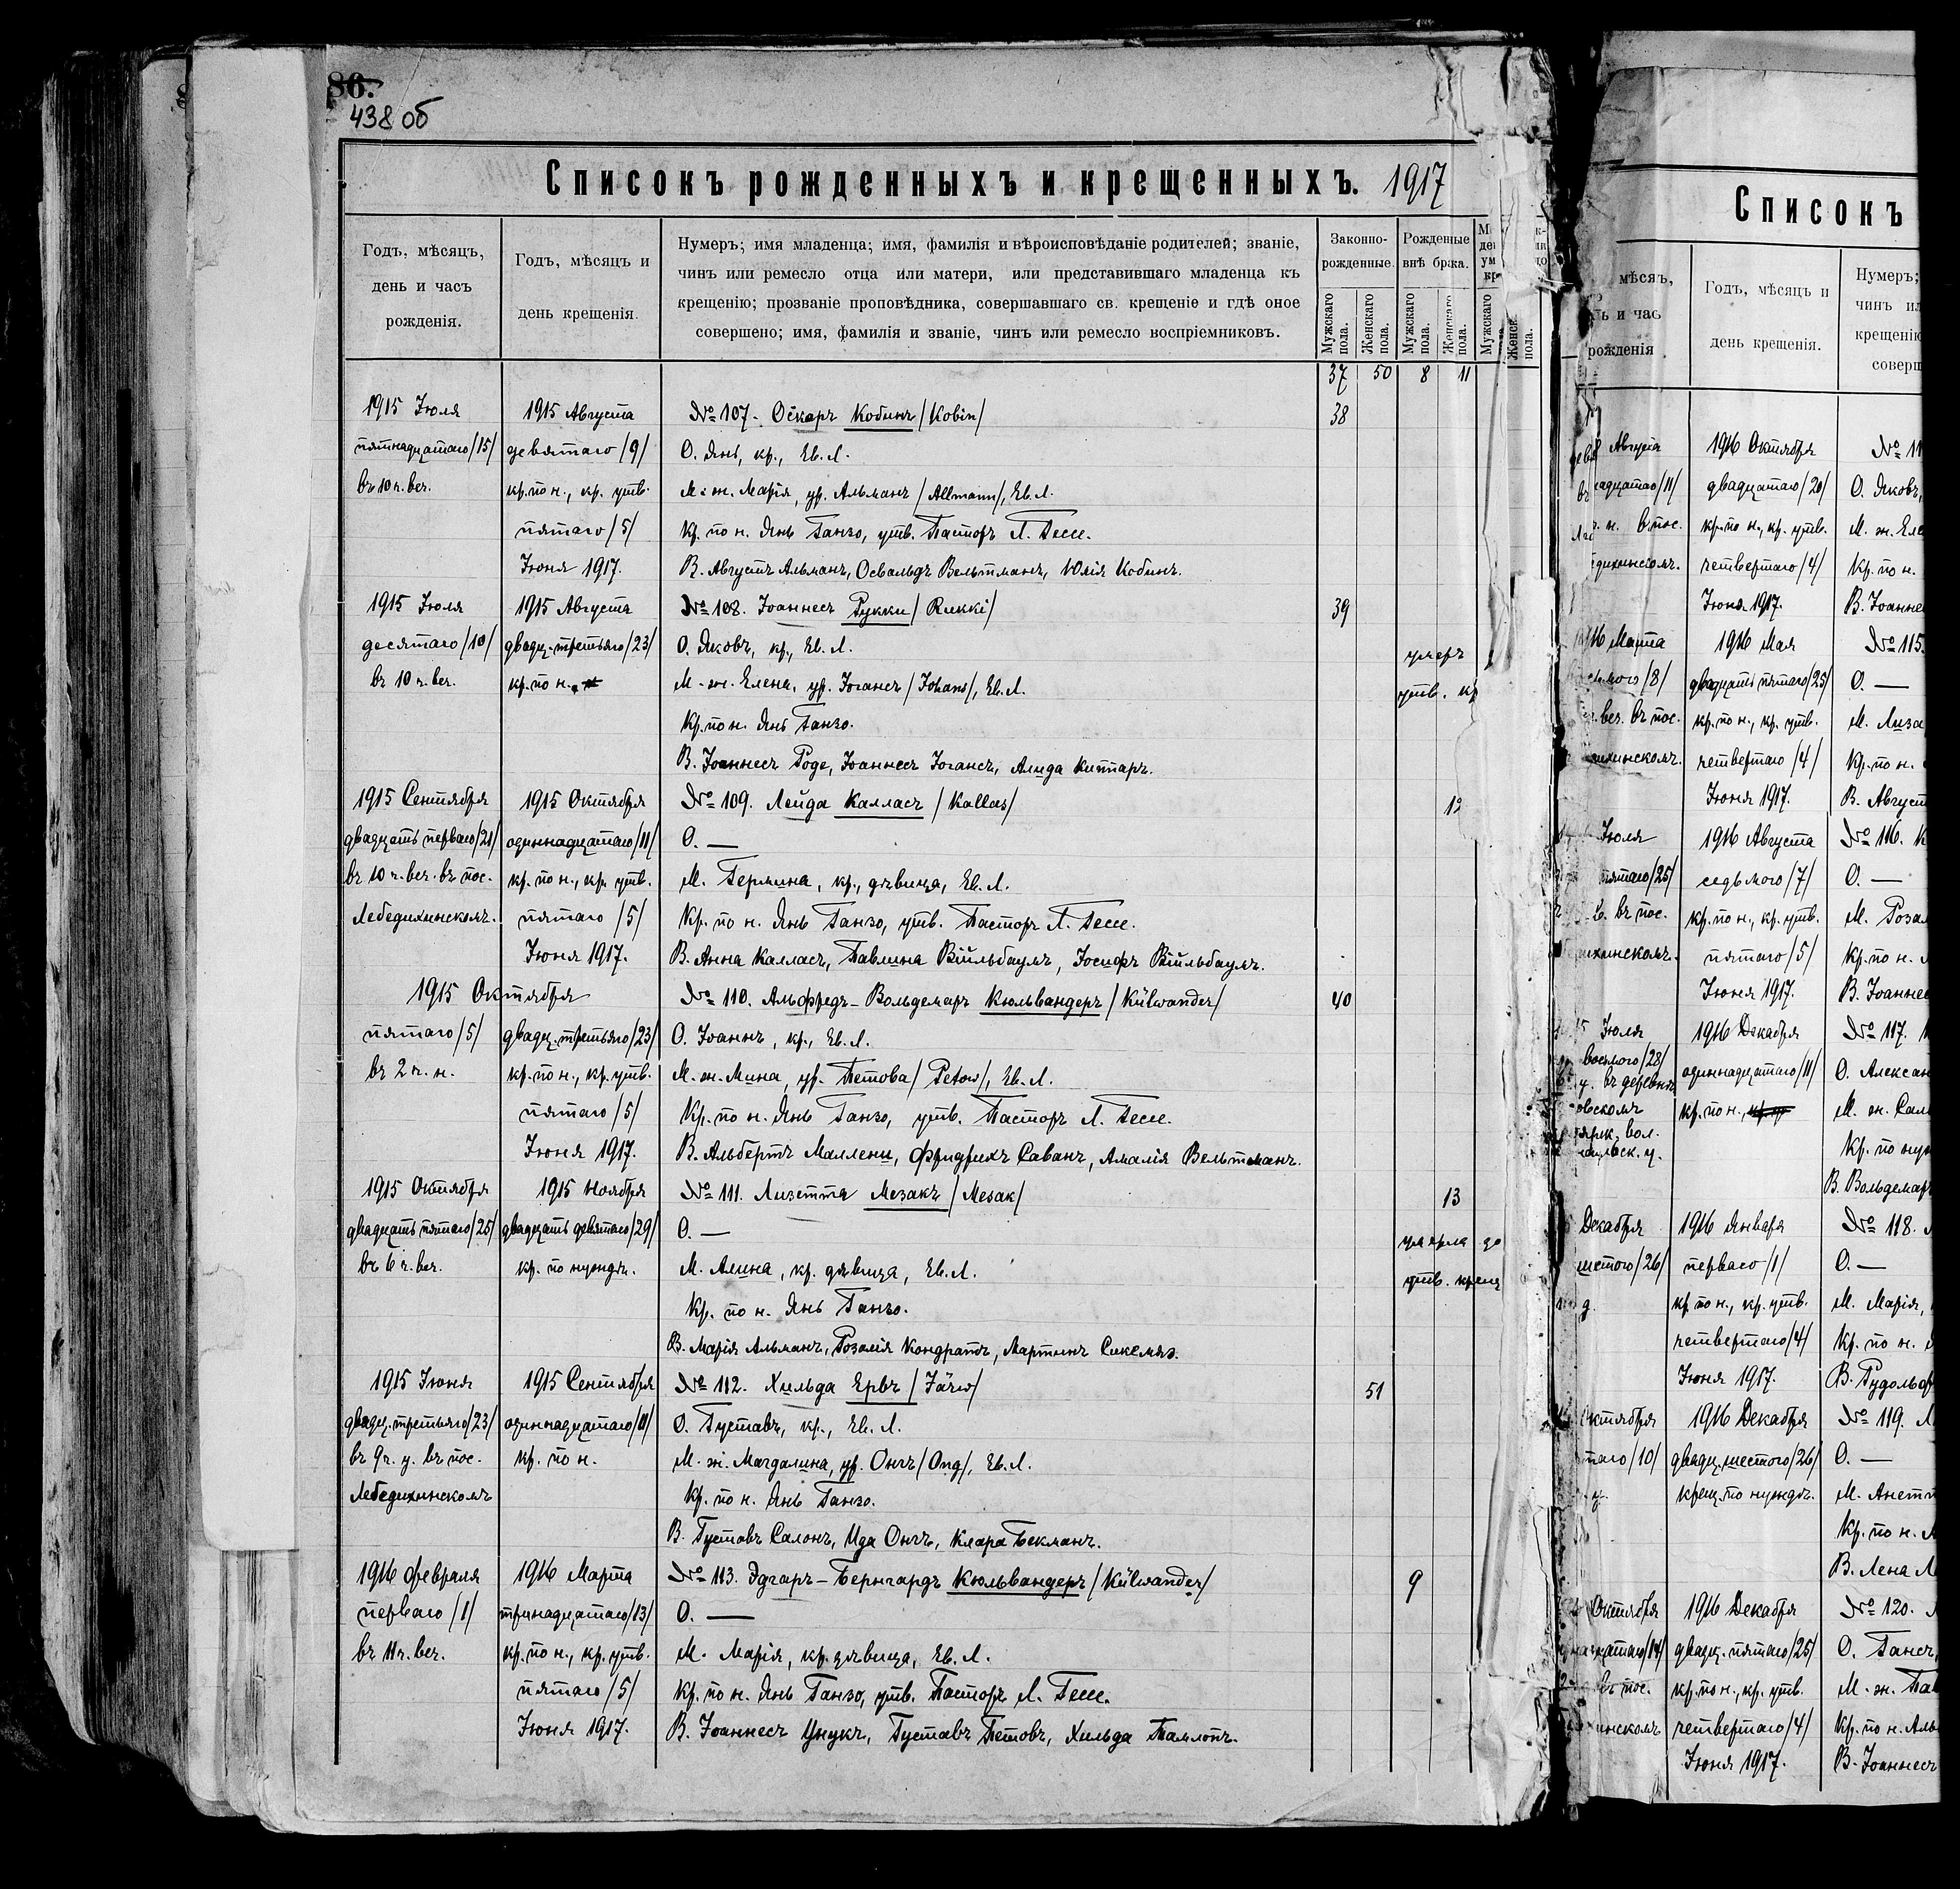 86.
438 об
Списокъ рожденныхъ и крещенныхъ. 1917
Годъ, мѣсяцъ, день и часъ рожденія.
Годъ, мѣсяцъ и день крещенія.
Нумеръ; имя младенца; имя, фамилія и вѣроисповѣданіе родителей; званіе,
чинъ или ремесло отца или матери, или представившаго младенца къ
крещенію; прозваніе проповѣдника, совершавшаго св. крещеніе и гдѣ оное
совершено; имя, фамилія и званіе, чинъ или ремесло воспріемниковъ.
Законно-рожденные.
Рожденные внѣ брака.
Мужскаго пола.
Женскаго пола.
Мужскаго пола.
Женскаго пола.
Мужскаго
Женск. пола.
37 50 8 11
1915 Іюля 1915 Августа №107. Оскаръ Кобинъ /Kobin/ 38
пятнадцатаго /15/ девятаго /9/ О. Янъ, кр., Ев. Л.
въ 10 ч. веч. кр. по н., кр. утв. М. ж. Марія, ур. Альманъ /Allmann/, Ев. Л.
пятаго /5/ Кр. по н. Янъ Ганзо, утв. Пасторъ Л. Гессе.
Іюня 1917. В. Августъ Альманъ, Освальдъ Вельтманъ, Юлія Кобинъ.
1915 Іюля 1915 Августа №108. Іоаннесъ Рукки /Rukki/ 39
десятаго /10/ двадц. третьяго /23/ О. Яковъ, кр., Ев. Л. умеръ
въ 10 ч. веч. кр. по н. М. ж. Елена, ур. Іогансъ /Johans/, Ев. Л. утв. кр
Кр. по н. Янъ Ганзо.
В. Іоаннесъ Роде, Іоаннесъ Іогансъ, Алида Киттаръ.
1915 Сентября 1915 Октября №109. Лейда Калласъ /Kallas/ 12
двадцать перваго /21/ одиннадцатаго /11/ О. —
въ 10 ч. веч. въ пос. кр. по н., кр. утв. М. Гермина, кр., дѣвица, Ев. Л.
Лебедихинскомъ. пятаго /5/ Кр. по н. Янъ Ганзо, утв. Пасторъ Л. Гессе.
Іюня 1917. В. Анна Калласъ, Павлина Війльбаумъ, Іосифъ Війльбаумъ.
1915 Октября №110. Альфредъ-Вольдемаръ Кюльвандеръ /Külwander/ 40
пятаго /5/ двадц. третьяго /23/ О. Іоаннъ, кр., Ев. Л.
въ 2 ч. н. кр. по н., кр. утв. М. ж. Мина, ур. Петова /Petow/, Ев. Л.
пятаго /5/ Кр. по н. Янъ Ганзо, утв. Пасторъ Л. Гессе.
Іюня 1917. В. Альбертъ Маллени, Фридрихъ Саванъ, Амалія Вельтманъ.
1915 Октября 1915 Ноября №111. Лизетта Мезакъ /Mesak/ 13
двадцать пятаго /25/ двадцать девятаго /29/ О. — умерла до
въ 6 ч. веч. кр. по нуждѣ. М. Алина, кр. дѣвица, Ев. Л. утв. крещ
Кр. по н. Янъ Ганзо.
В. Марія Альманъ, Розалія Кондратъ, Мартинъ
1915 Іюня 1915 Сентября №112. Хильда Ервъ /Järw/ 51
двадц. третьяго /23/ одиннадцатаго /11/ О. Густавъ, кр., Ев. Л.
въ 9 ч. у. въ пос. кр. по н. М. ж. Магдалина, ур. Онгъ /Ong/, Ев. Л.
Лебедихинскомъ Кр. по н. Янъ Ганзо.
В. Густавъ Салонъ, Ида Онгъ, Клара Бекманъ.
1916 Февраля 1916 Марта №113. Эдгаръ-Бернгардъ Кюльвандеръ /Külwander/ 9
перваго /1/ тринадцатаго /13/ О. —
въ 11 ч. веч. кр. по н., кр. утв. М. Марія, кр. дѣвица, Ев. Л.
пятаго /5/ Кр. по н. Янъ Ганзо, утв. Пасторъ Л. Гессе.
Іюня 1917. В. Іоаннесъ Унукъ, Густавъ Петовъ, Хильда
Списокъ
мѣсяъ,
и час
рожденія
Годъ, мѣсяцъ и день крещенія.
Нумеръ;
чинъ ил
крещенію
соверш
Августа 1916 Октября № 11
/11/ двадцатаго /20/ О. Яковъ,
въ пос. кр. по н., кр. утв. М. ж. Еле
четвертаго /4/ Кр. по н.
Іюня 1917. В. Іоанне
Марта 1916 Мая №115.
/8/ двадцать пятаго /25/ О. —
веч. въ пос. кр. по н., кр. утв. М. Лиза
четвертаго /4/ Кр. по н.
Іюня 1917. В. Август
Іюля 1916 Августа №116. К
пятаго /25/ седьмого /7/ О. —
въ пос. кр. по н., кр. утв. М. Роза
пятаго /5/ Кр. по н.
Іюня 1917. В. Іоаннес
Іюля 1916 Декабря №117.
восьмого /28/ одиннадцатаго /11/ О. Алексан
въ деревнѣ кр. по н., М. ж. Сал
вол. Кр. по нуж
В. Вольдемар
Декабря 1916 Января №118.
шестого /26/ перваго /1/ О. —
кр. по н., кр. утв. М. Марія,
четвертаго /4/ Кр. по н.
Іюня 1917. В. Рудольф
1916 Декабря №119.
/10/ двадц. шестого /26/ О. —
крещ. по нуждѣ. М. Анетт
Кр. по н.
В. Лена
Октября 1916 Декабря №120.
/14/ двадц. пятаго /25/ О. Гансъ,
въ пос. кр. по н., кр. утв. М. ж. Пав
четвертаго /4/ Кр. по н. Аль
Іюня 1917. В. Іоаннесъ